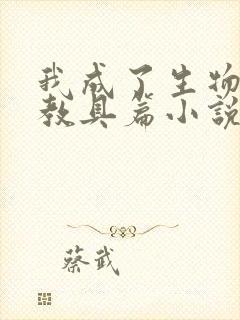 我成了生物
教具篇小說
蔡武